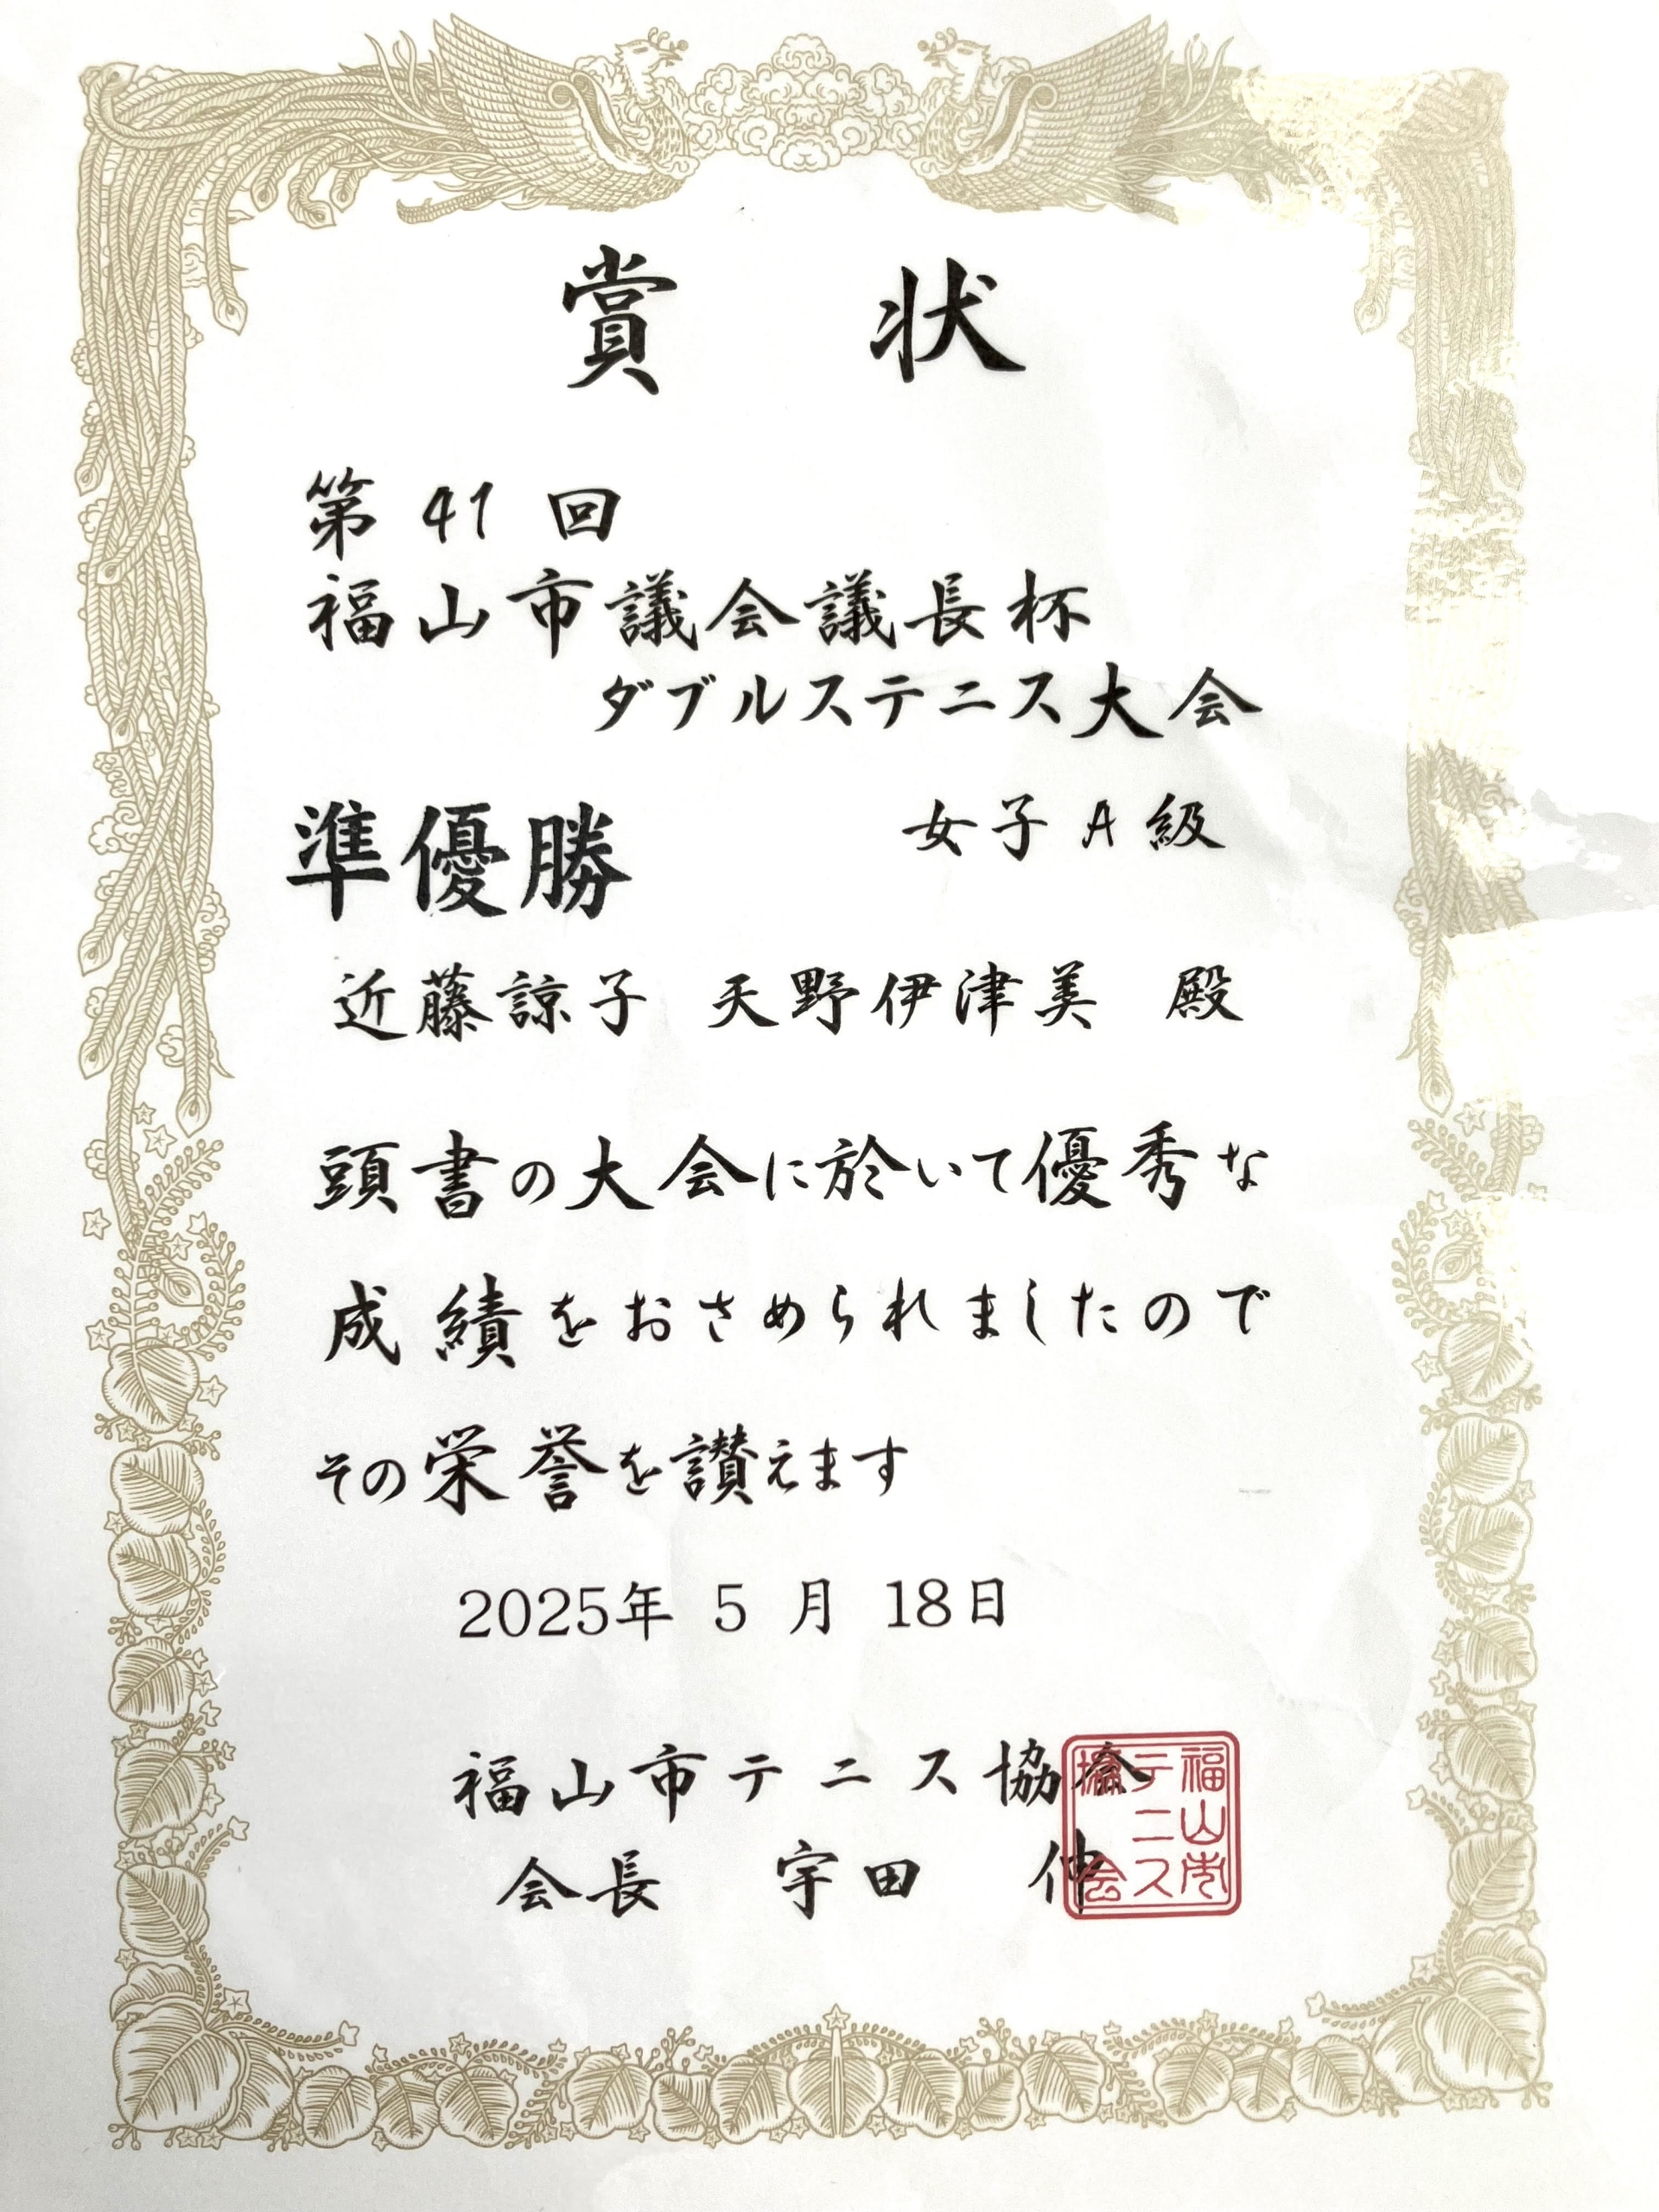 賞状
第 41 回
福山市議会議長杯
ダブルステニス大会
準優勝 女子 A 級
近藤諒子 天野伊津美 殿
頭書の大会に於いて優秀な
成績をおさめられましたので
その栄誉を讃えます
2025年 5 月 18日
福山市テニス協会
会長 宇田 伸
福山市
テニス
協会